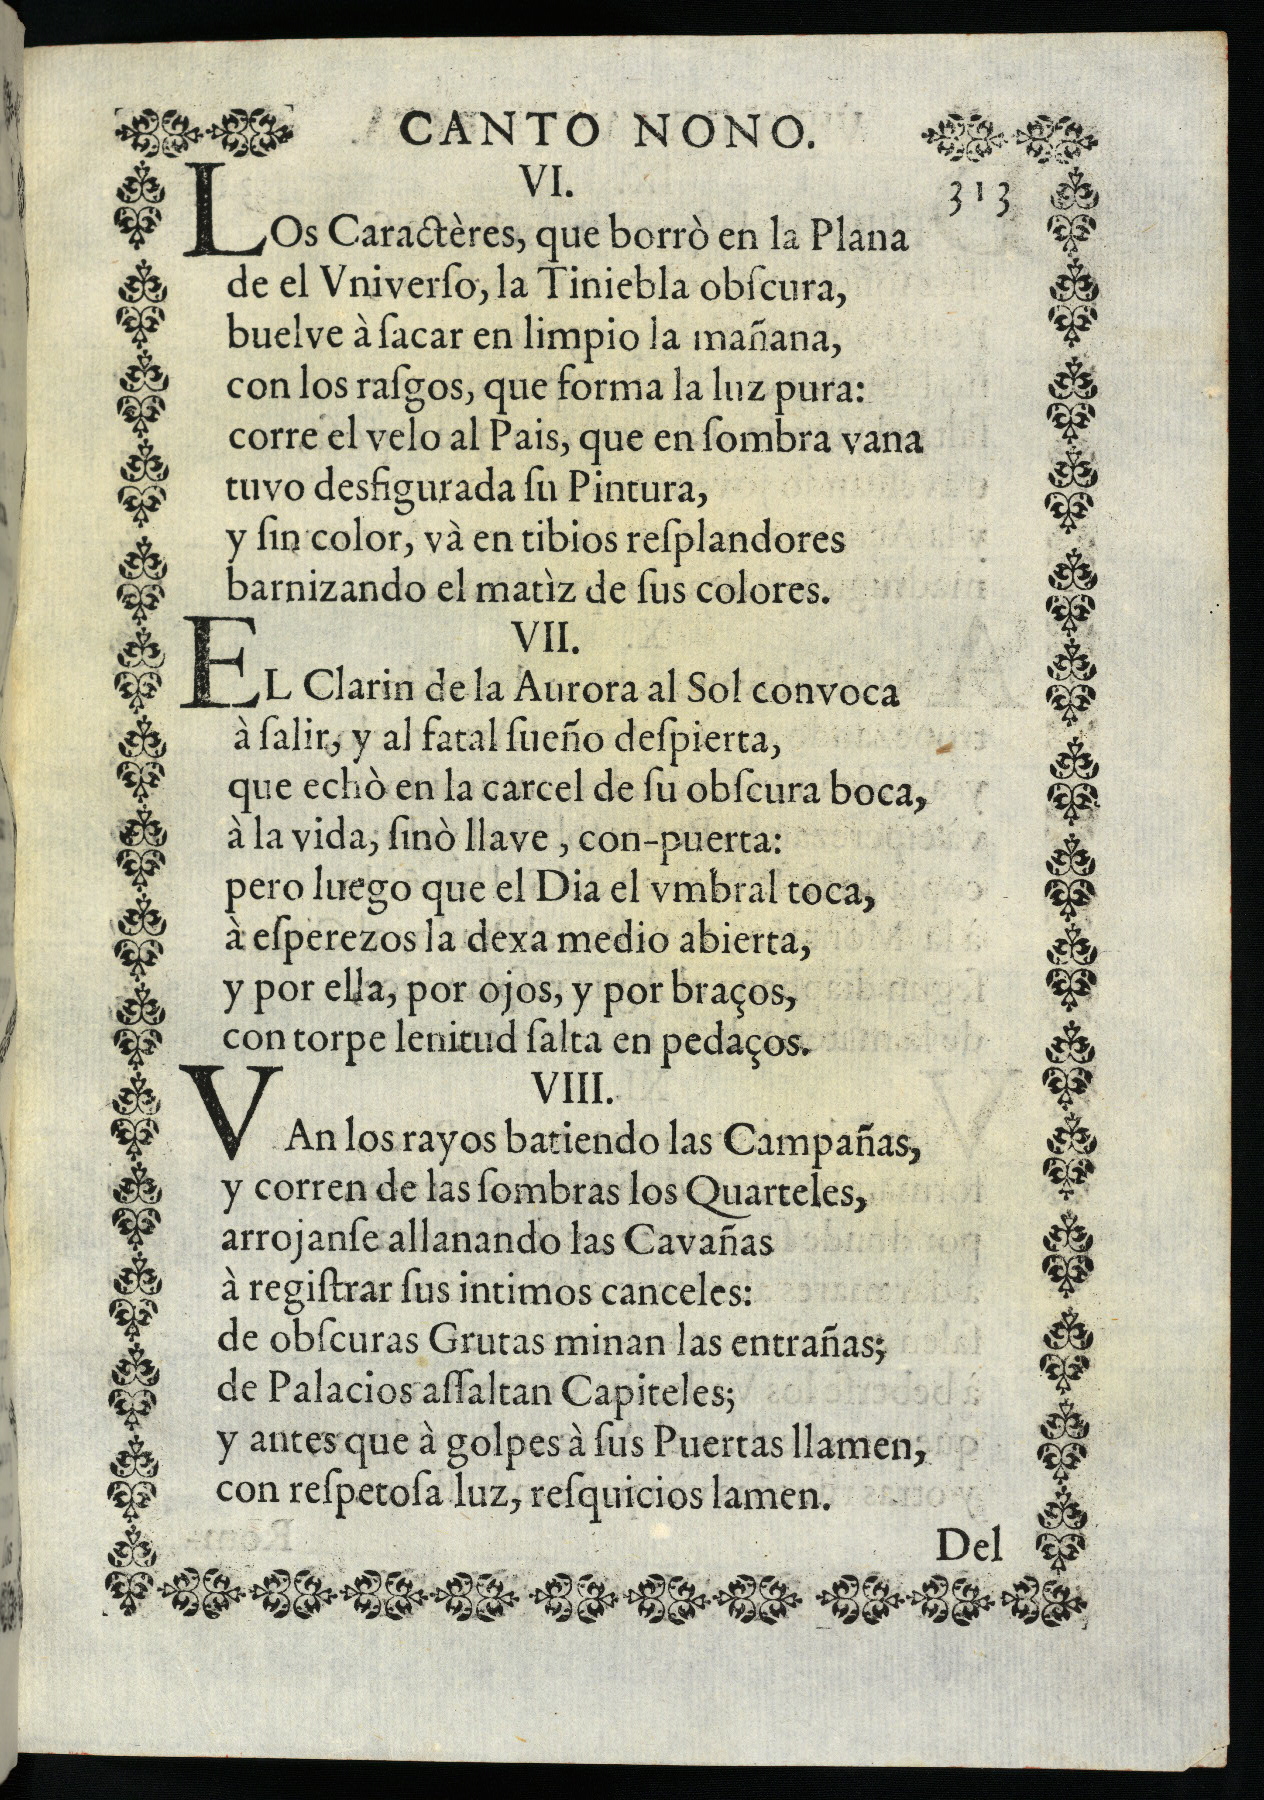 CANTO NONO.
VI.
313
LOs Caractères, que borrò en la Plana
de el Vniverſo, la Tiniebla obſcura,
buelve à ſacar en limpio la mañana,
con los raſgos, que forma la luz pura:
corre el velo al Pais, que en ſombra vana
tuvo desfigurada ſu Pintura,
y ſin color, và en tibios reſplandores
barnizando el matìz de ſus colores.
VII.
EL Clarin de la Aurora al Sol convoca
à ſalir, y al fatal ſueño deſpierta,
que echò en la carcel de ſu obſcura boca,
à la vida, ſinò llave , con-puerta:
pero luego que el Dia el vmbral toca,
à eſperezos la dexa medio abierta,
y por ella, por ojos, y por braços,
con torpe lenitud ſalta en pedaços.
VIII.
VAn los rayos batiendo las Campañas,
y corren de las ſombras los Quarteles,
arrojanſe allanando las Cavañas
à regiſtrar ſus intimos canceles:
de obſcuras Grutas minan las entrañas;
de Palacios aſſaltan Capiteles;
y antes que à golpes à ſus Puertas llamen,
con reſpetoſa luz, reſquicios lamen.
Del